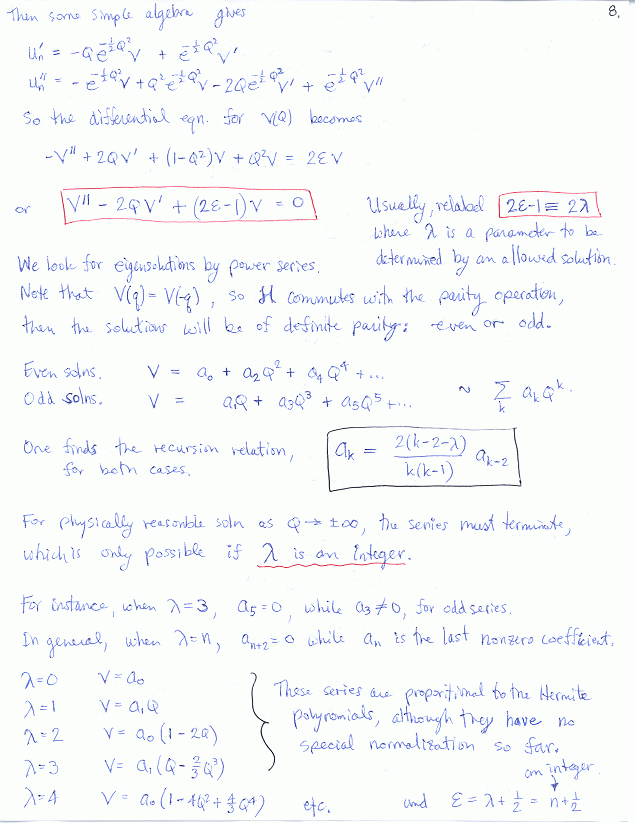 Then some simple algebra gives 8.
uₙ' = -Q e^{-½Q²} V + e^{-½Q²} V'
uₙ'' = - e^{-½Q²} V + Q² e^{-½Q²} V - 2Q e^{-½Q²} V' + e^{-½Q²} V''
So the differential eqn. for V(Q) becomes
-V'' + 2QV' + (1-Q²)V + Q²V = 2ε V
or V'' - 2QV' + (2ε-1)V = 0 Usually, relabel 2ε-1 ≡ 2λ
where λ is a parameter to be
determined by an allowed solution.
We look for eigensolutions by power series.
Note that V(q) = V(-q), so H commutes with the parity operation,
then the solutions will be of definite parity: even or odd.
Even solns. V = a₀ + a₂Q² + a₄Q⁴ + ...
Odd solns. V = a₁Q + a₃Q³ + a₅Q⁵ + ... ~ Σ_k a_k Q^k.
One finds the recursion relation, a_k = 2(k-2-λ) / k(k-1) a_{k-2}
for both cases.
For physically reasonble soln as Q → ±∞, the series must terminate,
which is only possible if λ is an integer.
For instance, when λ=3, a₅=0, while a₃≠0, for odd series.
In general, when λ=n, a_{n+2}=0 while aₙ is the last nonzero coefficient.
λ=0 V = a₀
λ=1 V = a₁Q
λ=2 V = a₀(1-2Q)
λ=3 V = a₁(Q - ⅔Q³)
λ=4 V = a₀(1-4Q² + 4/3 Q⁴) etc.
These series are proportional to the Hermite
polynomials, although they have no
special normalization so far.
an integer
and ε = λ + ½ = n + ½